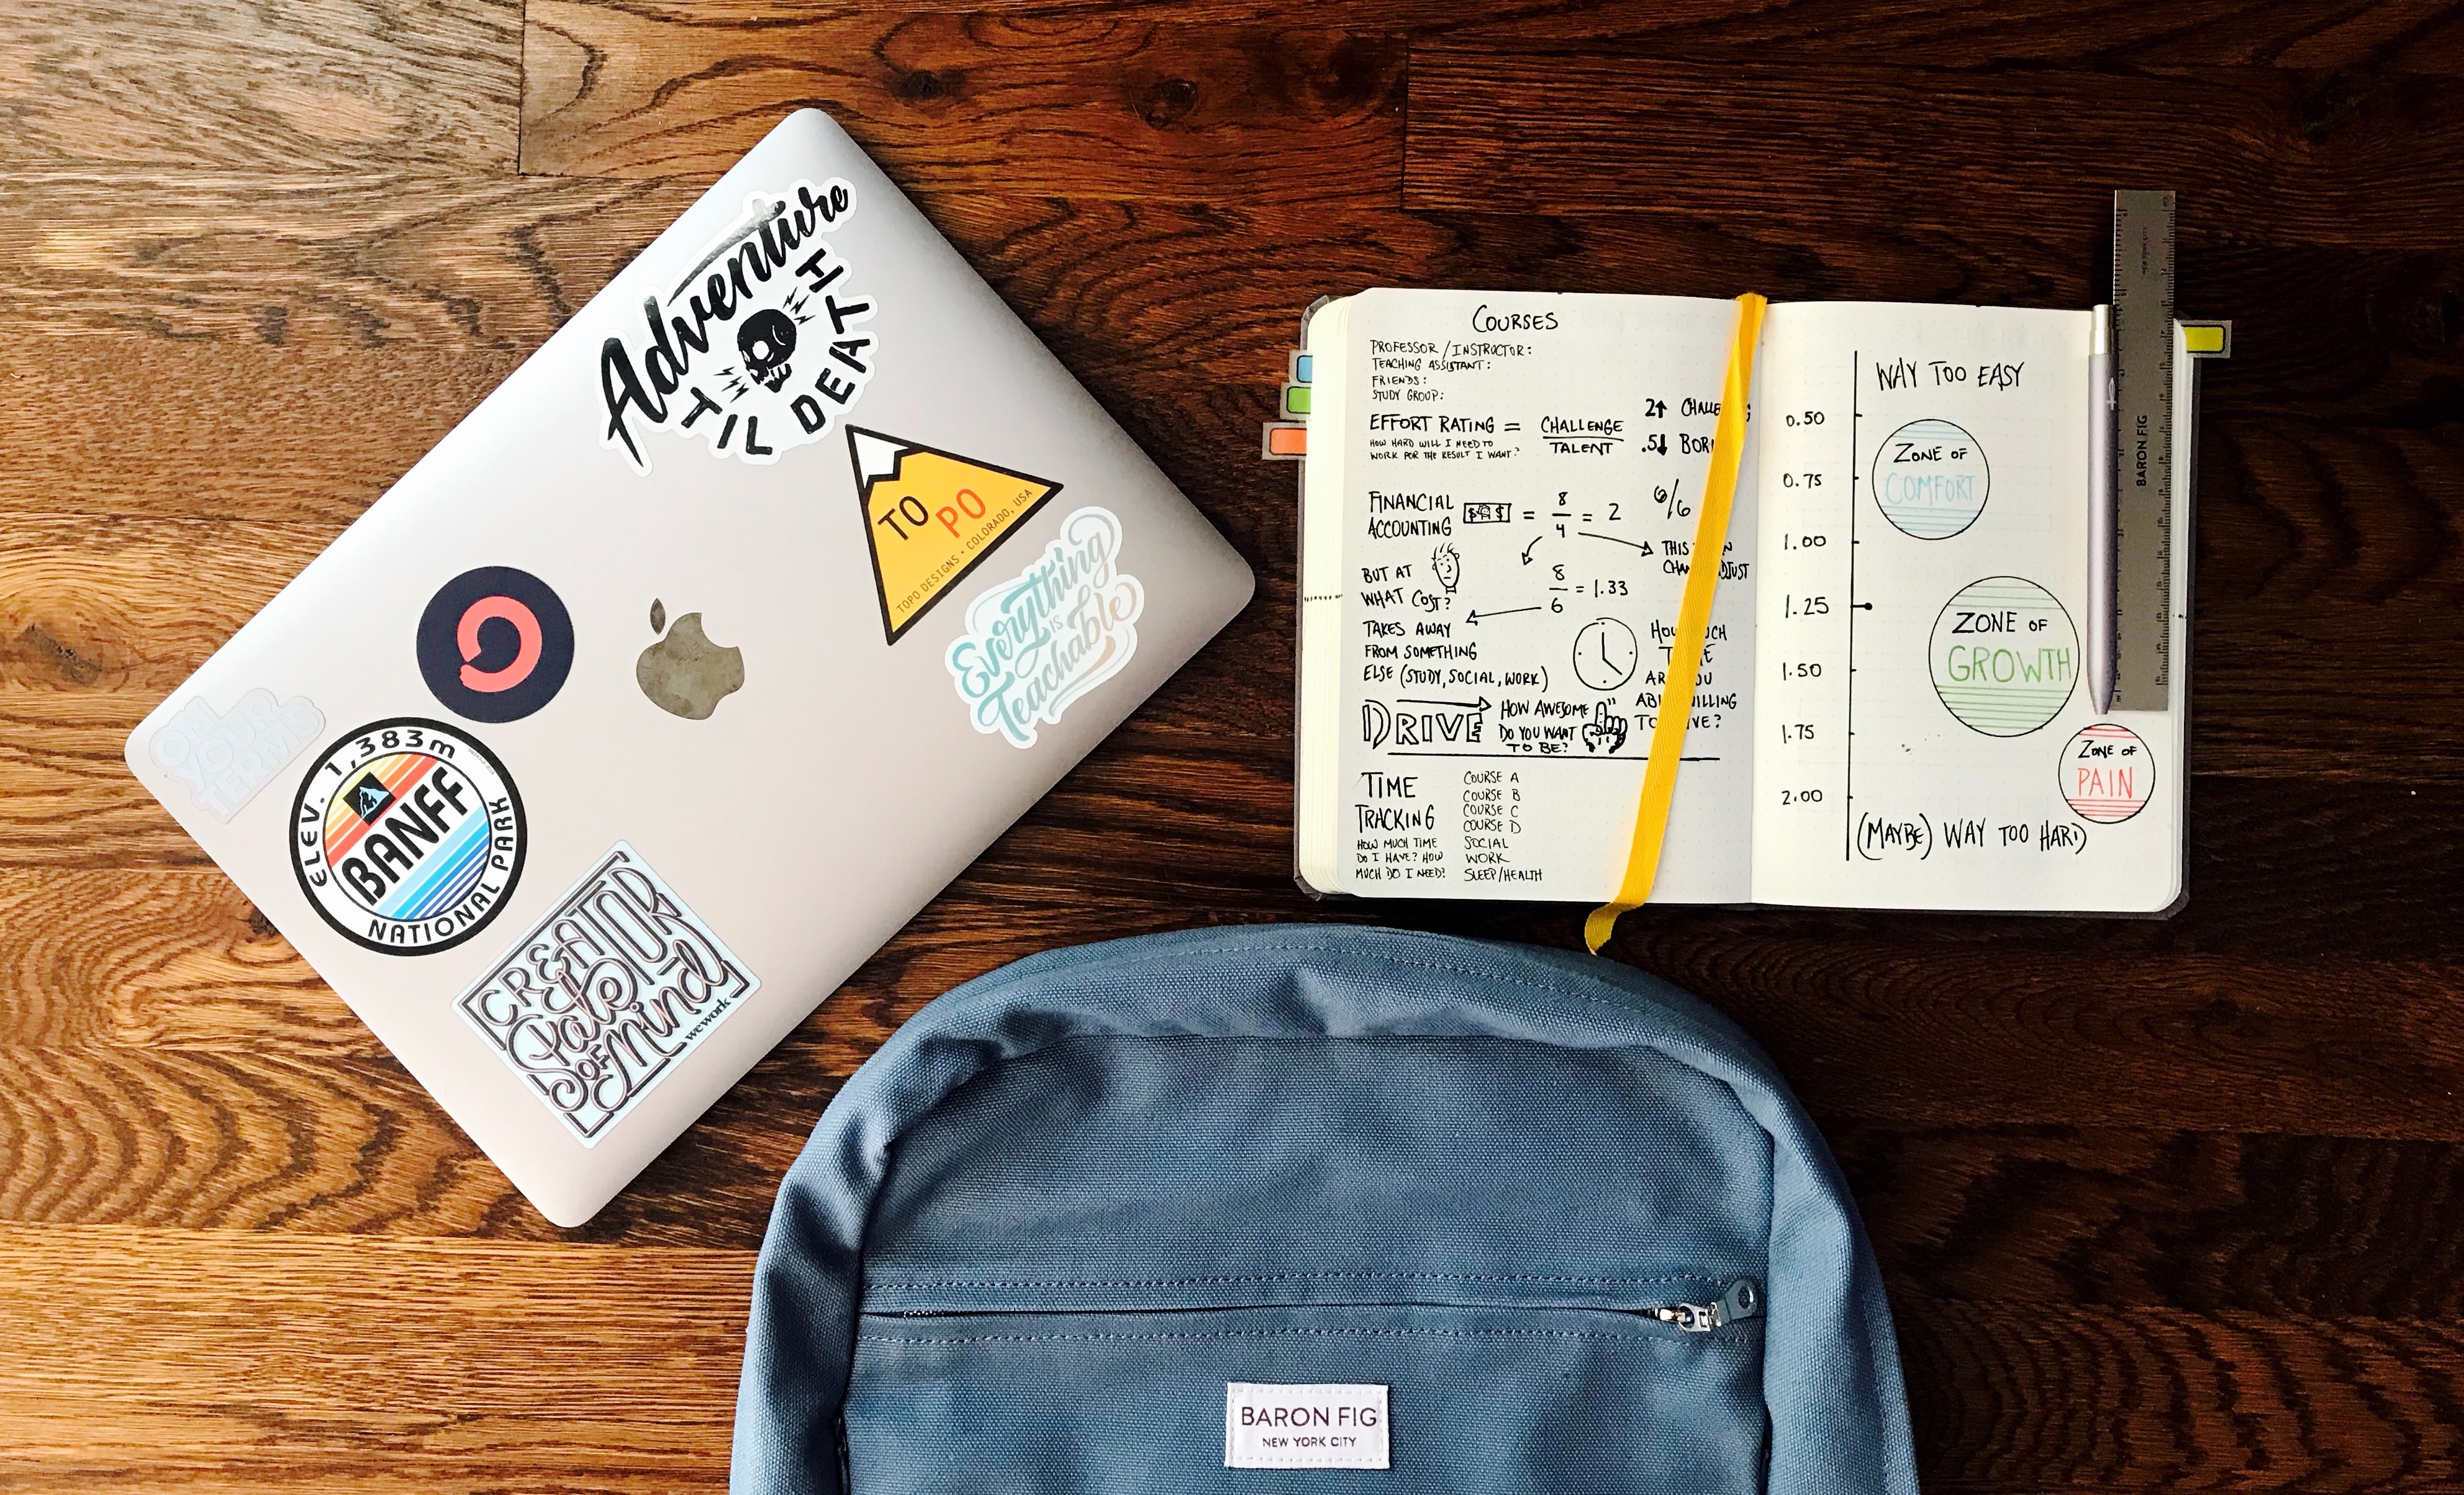 Adventure
TIL DEATH
TO PO
TOPO DESIGNS - COLORADO, USA
Everything
IS
Teachable
ON
YOUR
TERMS
ELEV. 1,383m
BANFF
NATIONAL PARK
CREATOR
State
OF Mind
wework
COURSES
PROFESSOR / INSTRUCTOR:
TEACHING ASSISTANT:
FRIENDS:
STUDY GROUP:
EFFORT RATING = CHALLENGE
TALENT
HOW HARD WILL I NEED TO
WORK FOR THE RESULT I WANT?
2↑
.5↓
FINANCIAL
ACCOUNTING
$ $ = 8/4 = 2
6/6
THIS
BUT AT
WHAT COST?
8/6 = 1.33
TAKES AWAY
FROM SOMETHING
ELSE (STUDY, SOCIAL, WORK)
TO
DRIVE
HOW AWESOME
DO YOU WANT
TO BE?
TIME
TRACKING
HOW MUCH TIME
DO I HAVE? HOW
MUCH DO I NEED?
COURSE A
COURSE B
COURSE C
COURSE D
SOCIAL
WORK
SLEEP/HEALTH
WAY TOO EASY
0.50
ZONE OF
COMFORT
0.75
1.00
1.25
ZONE OF
GROWTH
1.50
1.75
ZONE OF
PAIN
2.00
(MAYBE) WAY TOO HARD
BARON FIG
BARON FIG
NEW YORK CITY